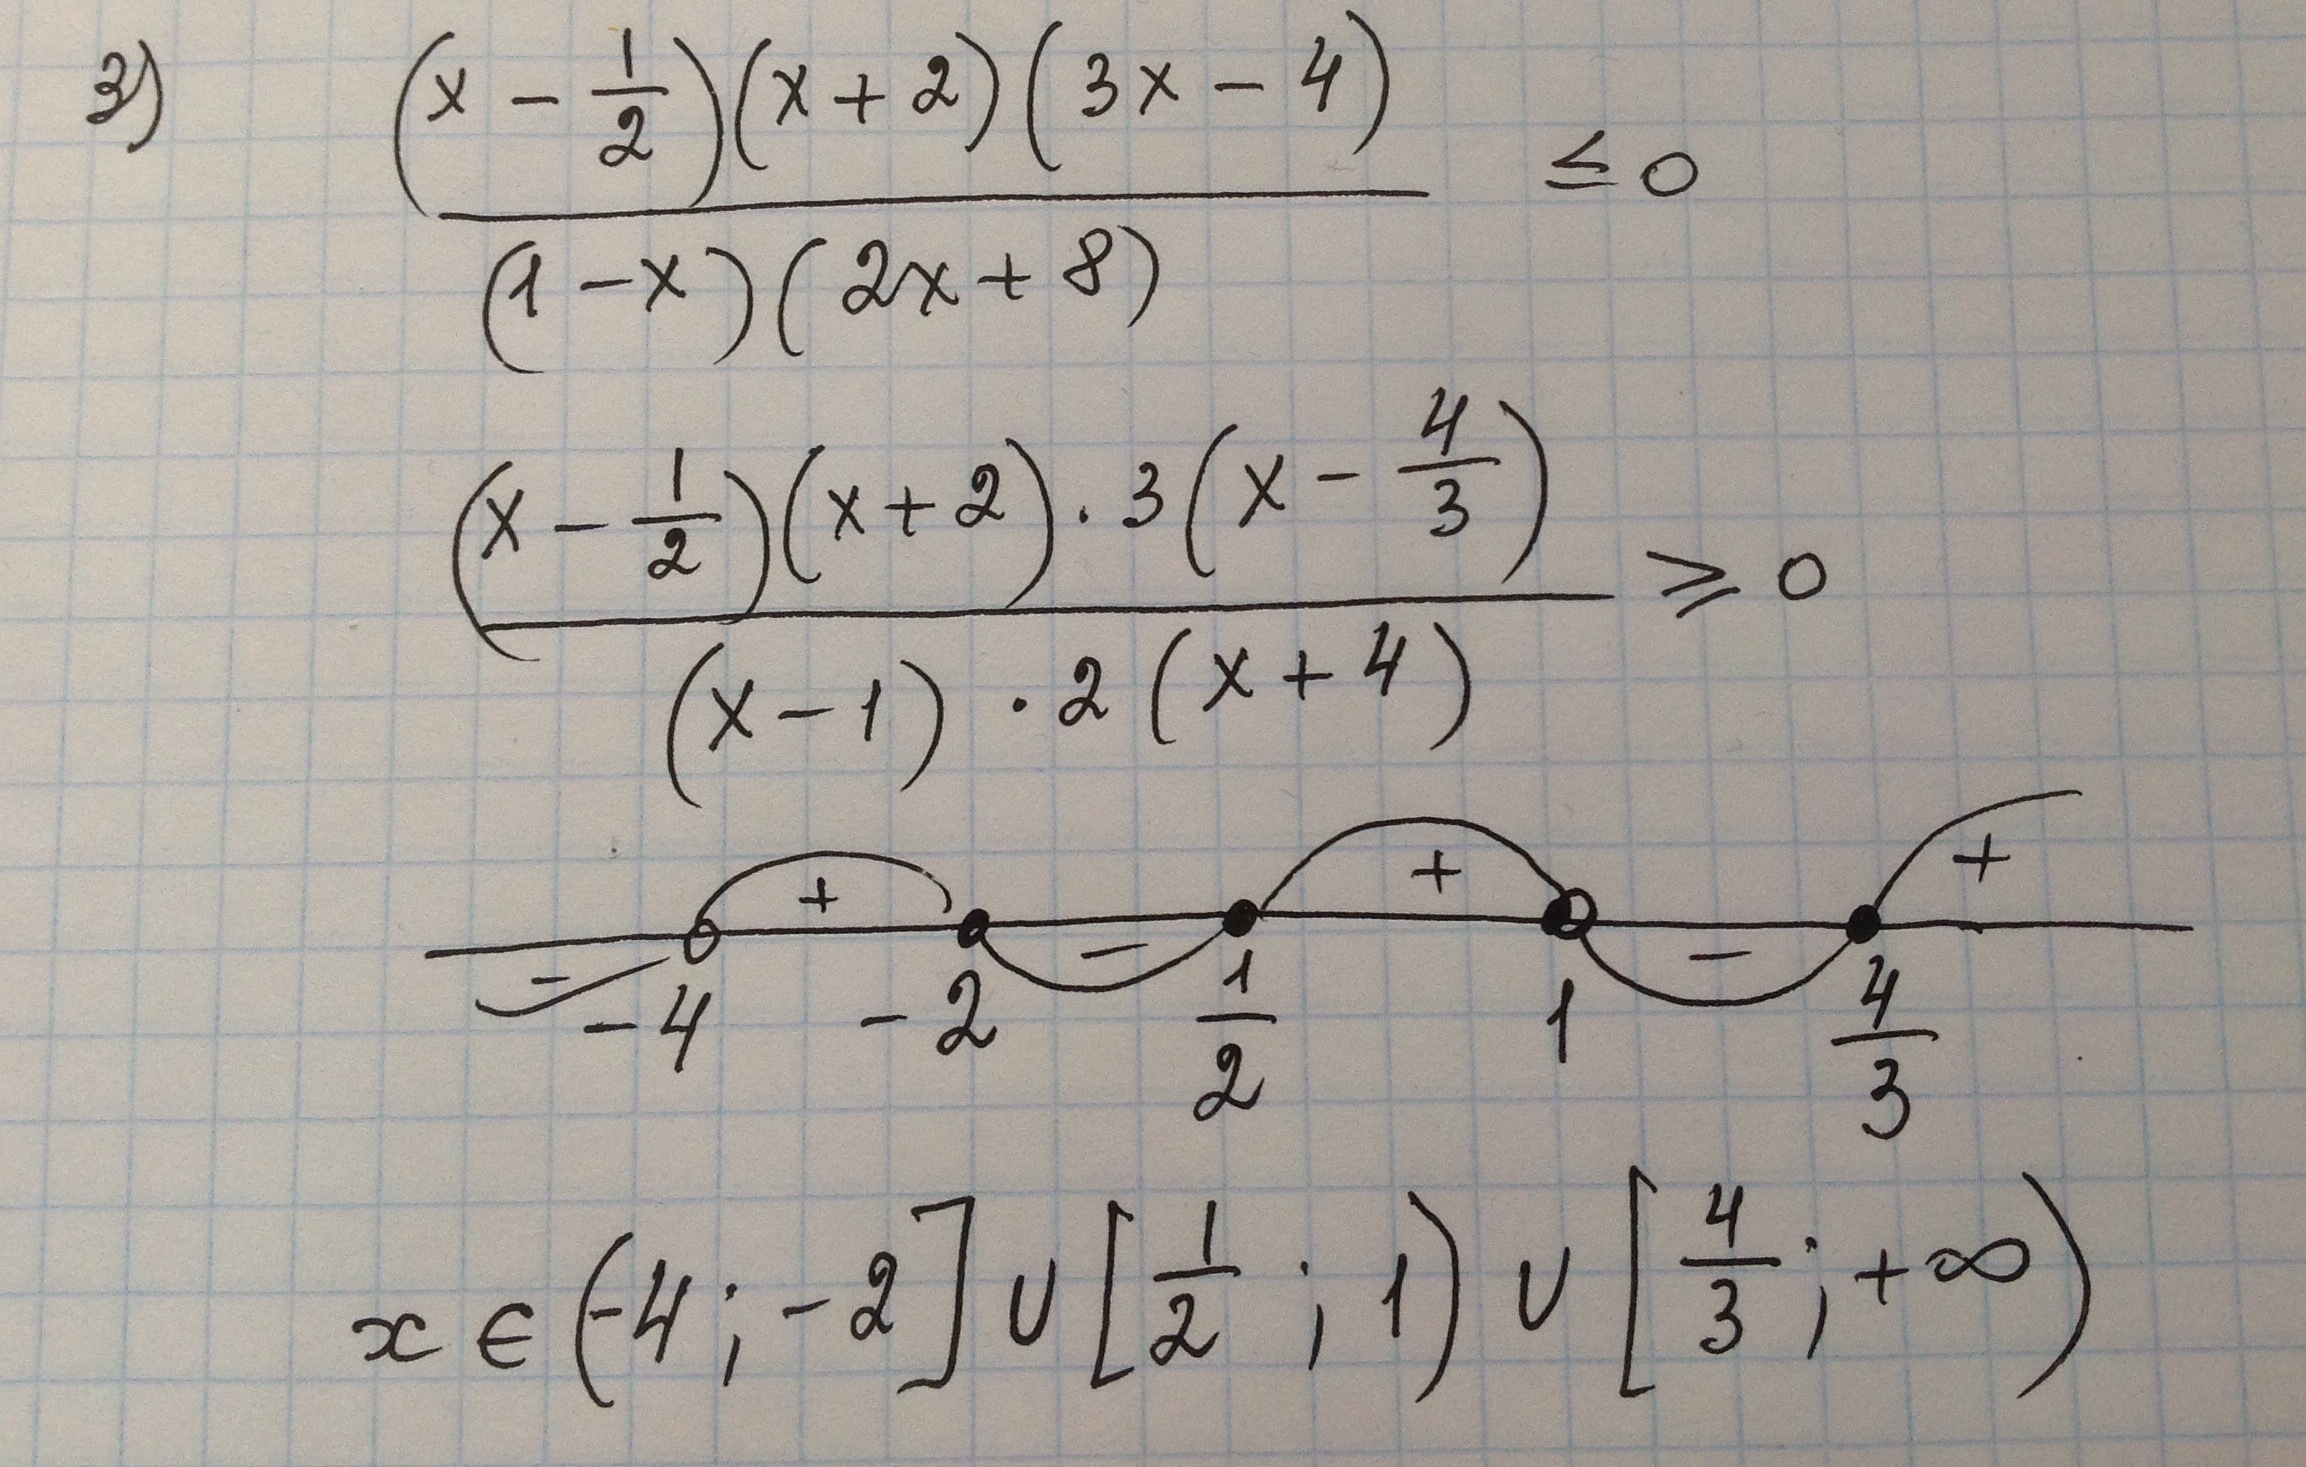 3) (x - 1/2)(x + 2)(3x - 4) / (1 - x)(2x + 8) ≤ 0
(x - 1/2)(x + 2) · 3(x - 4/3) / (x - 1) · 2(x + 4) ≥ 0
- + - + - +
-4 -2 1/2 1 4/3
x ∈ (-4; -2] ∪ [1/2; 1) ∪ [4/3; +∞)